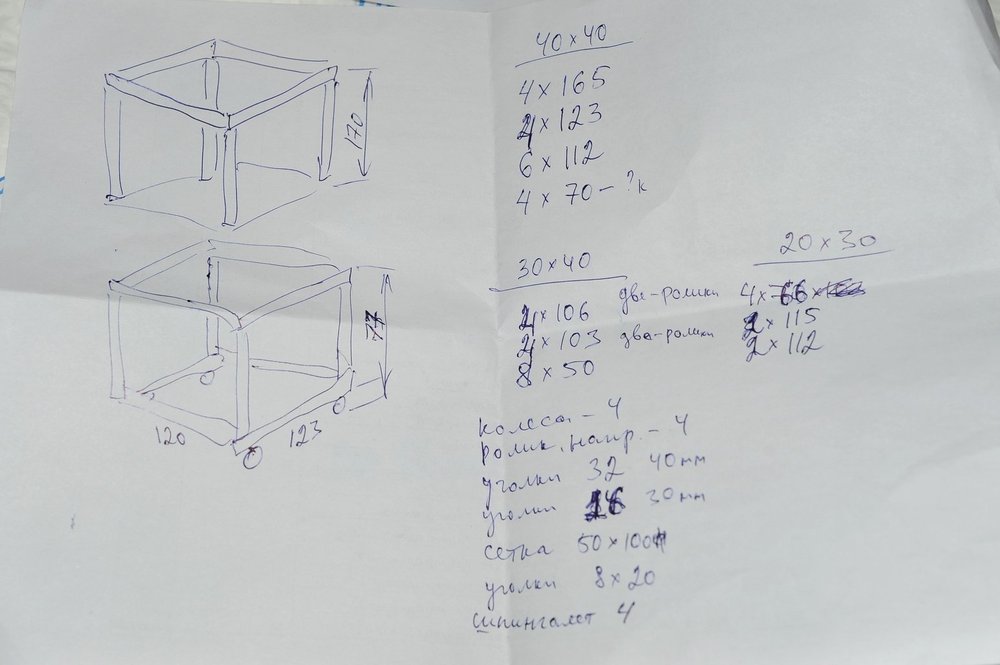 170
77
120
123
40×40
4×165
4×123
6×112
4×70 – ?к
30×40
4×106 две-ролики
4×103 два-ролики
8×50
20×30
4×66
2×115
2×112
колеса – 4
ролик. напр. – 4
уголки 32 40мм
уголки 16 30мм
сетка 50×100
уголки 8×20
шпингалет 4